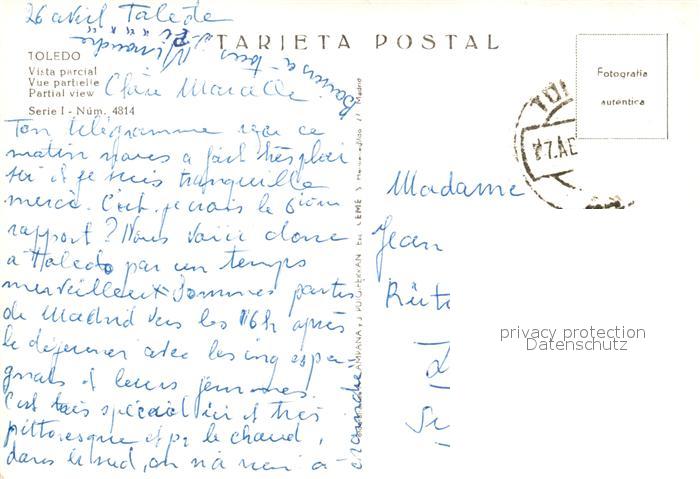 26 avril Tolede
TARJETA POSTAL
TOLEDO
Vista parcial
Vue partielle
Partial view
Serie I - Núm. 4814
Fotografía
autentica
Chère Marcelle.
Ton télégramme reçu ce
matin nous a fait très plai
sir et je suis tranquille
merci. C'est je crois le 6ième
rapport? Nous voici donc
a Toledo par un temps
merveilleux Sommes partis
de Madrid vers les 16h après
le déjeuner avec les ing espa-
gnols et leurs femmes.
C'est très spécial ici et très
pittoresque et pr le chaud,
dans le sud, on n'a rien à
Madame
Jean
privacy protection
Datenschutz